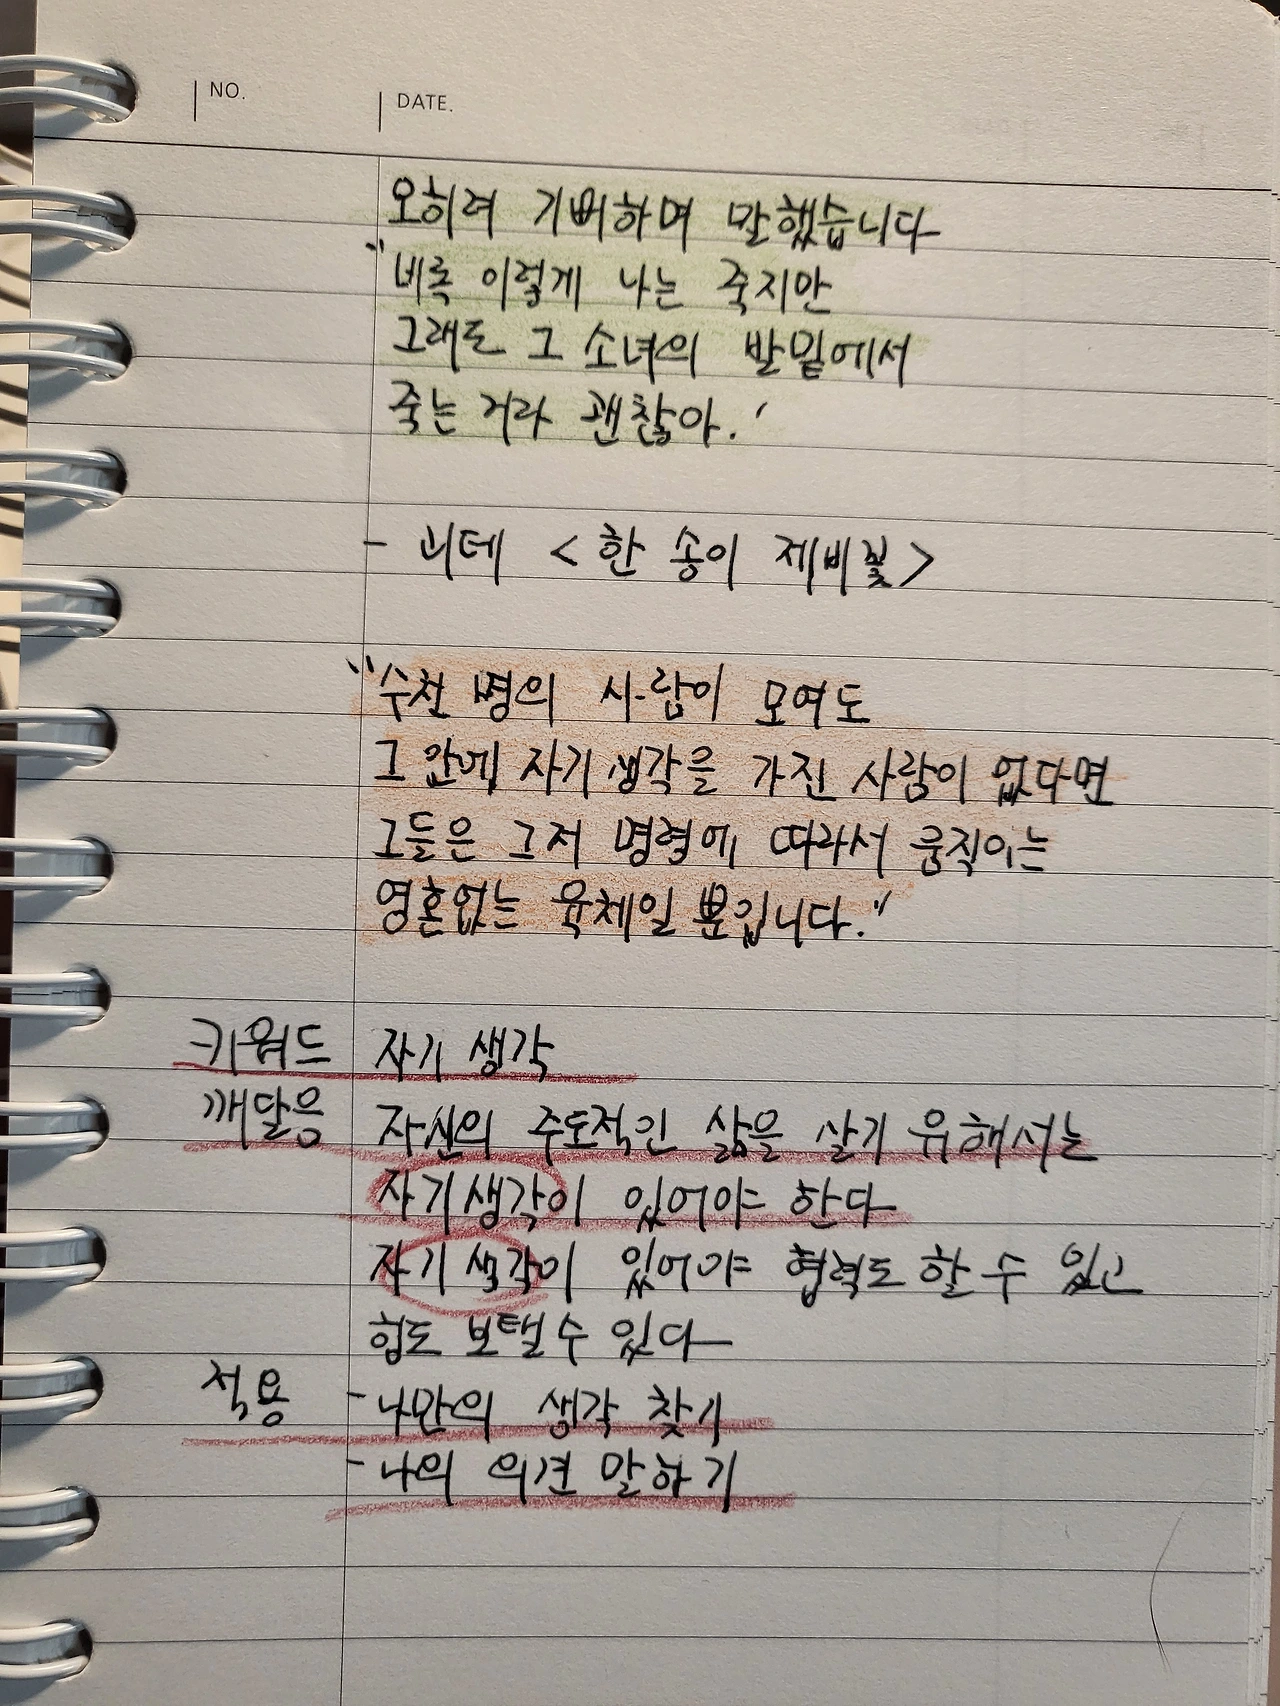 NO.
DATE.
오히려 기뻐하며 말했습니다
"비록 이렇게 나는 죽지만
그래도 그 소녀의 발밑에서
죽는 거라 괜찮아.'
- 괴테 <한 송이 제비꽃>
"수천 명의 사람이 모여도
그 안에 자기 생각을 가진 사람이 없다면
그들은 그저 명령에 따라서 움직이는
영혼없는 육체일 뿐입니다."
키워드 자기 생각
깨달음 자신의 주도적인 삶을 살기 위해서는
자기생각이 있어야 한다
자기 생각이 있어야 협력도 할 수 있고
힘도 보탤 수 있다
적용 - 나만의 생각 찾기
- 나의 의견 말하기